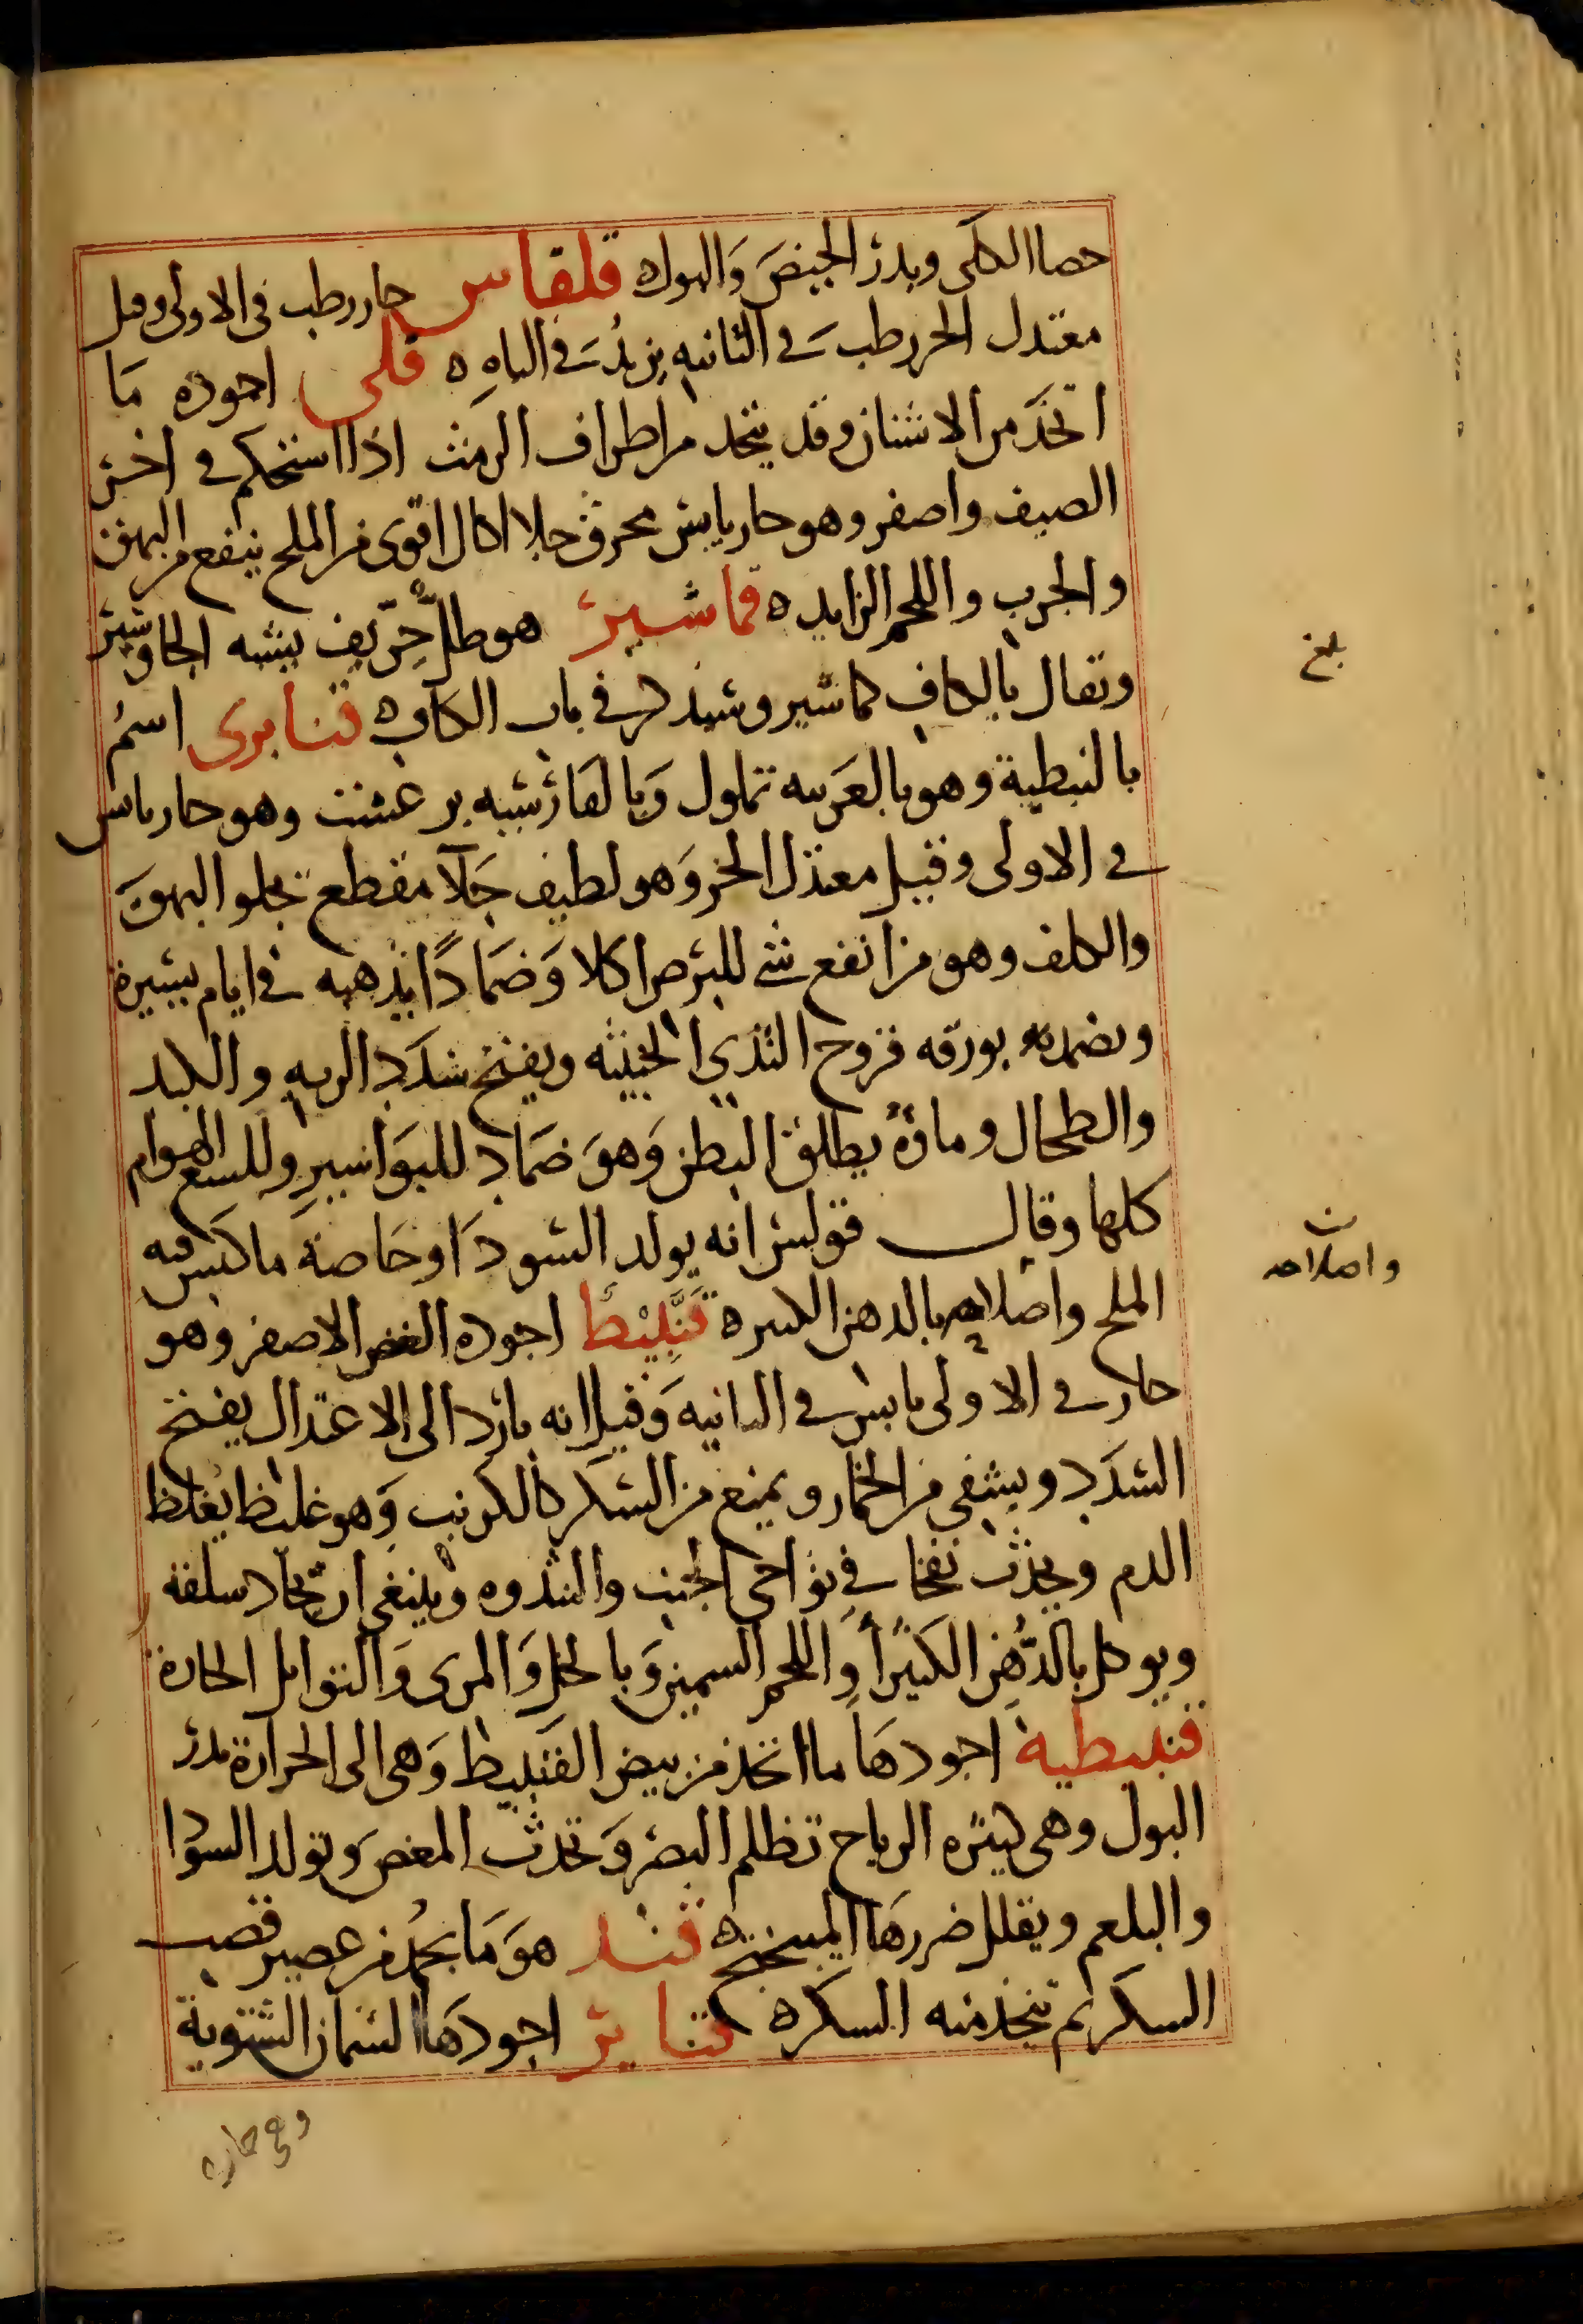 حصا الكلى ويدر الحيض والبول ه قلقاس حار رطب فى الاولى وقيل
معتدل الحر رطب فى الثانيه يزيد فى الباه ه قلى اجوده ما
اتخذ من الاشنان وقد يتخذ من اطراف الرمث اذا استحكم فى اخر
الصيف واصفر وهو حار يابس محرق جلا اكال اقوى من الملح ينفع من البهق
والجرب واللحم الزايد ه قماشير هو طل حِرّيف يشبه الجاوشير
ويقال بالكاف كماشير وسيذكر فى باب الكاف ه قنابرى اسمُ
بالنبطية وهو بالعربيه تملول وبالفارسيه برغشت وهو حار يابس
فى الاولى وقيل معتدل الحر وهو لطيف جلآ مقطع يجلو البهق
والكلف وهو من انفع شى للبرص اكلا وضمادًا يذهبه فى ايام يسيرة
ويضمد بورقه قروح الثدي الخبيثه ويفتح سدد الريه والكبد
والطحال وماؤه يطلق البطن وهو ضماد للبواسير وللسع الهوام
كلها وقال قولس انه يولد السودا وخاصة ما كبس فيه
الملح واصلاحه بالدهن الكثير ه قَنَّبِيْط اجوده الغض الاصفر وهو
حار فى الاولى يابس فى الثانيه وقيل انه بارد الى الاعتدال يفتح
السدد ويشفى من الخمار ويمنع من السكر كالكرنب وهو غليظ يغلظ
الدم ويحدث نفخا فى نواحى الجنب والثندوه وينبغى ان يجاد سلقه
ويوكل بالدُّهن الكثير أو اللحم السمين وبالخل والمرى والتوابل الحارة
قنبيطية اجودها ما اتخذ من بيض القنبيط وهى الى الحرارة تدر
البول وهى كثيره الرياح تظلم البصر وتحدث المغص وتولد السودا
والبلغم ويقلل ضررها الميبختج ه قند هو ما يجمد من عصير قصب
السكر ثم يتخذ منه السكر ه قنابر اجودها السمان الشتوية
وهى حاره
بلغ
ن
واصلاحه